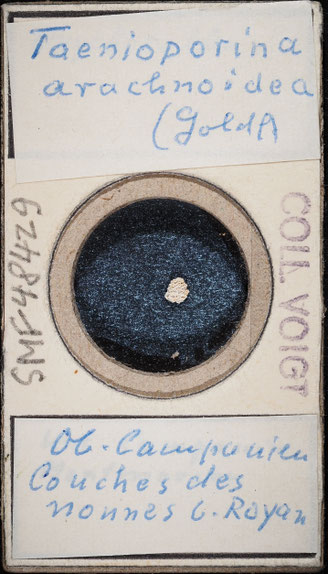 Taenioporina
arachnoidea
(Goldf)
SMF 48429
COLL. VOIGT
Ob. Campanien
Couches des
nonnes b. Royan